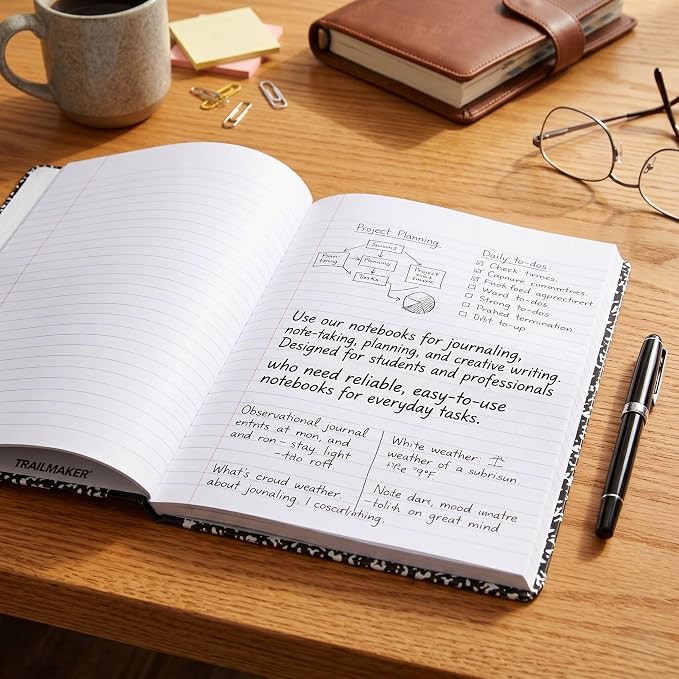 Project Planning
Surions
Planning
Tasks
Project
Daily to-dos
Check times
Capnure commetires
Ward to-dos
Strong to-dos
Prahed termination
Unit to-up
Use our notebooks for journaling,
note-taking, planning, and creative writing.
Designed for students and professionals
who need reliable, easy-to-use
notebooks for everyday tasks.
Observational journal
entnts at mon, and
and ron - stay light
What's croud weather
about jounaling. I
White weather:
weather of a subrisun.
Note darc, mood
on great mind
TRAILMAKER